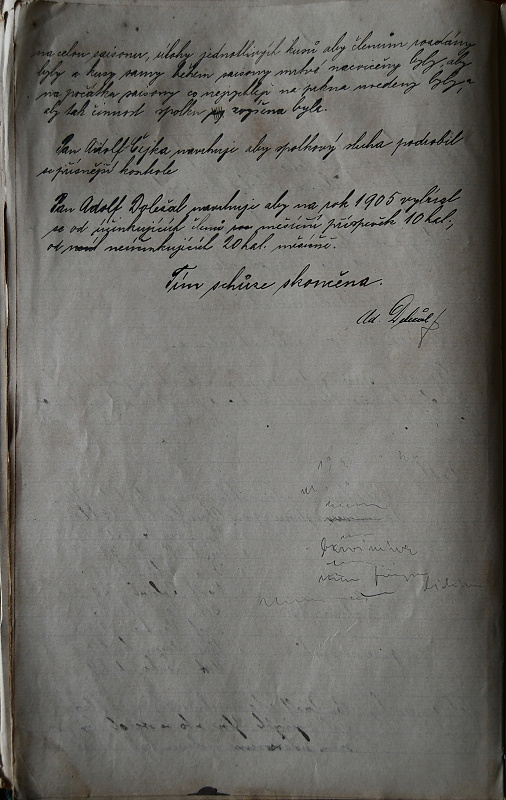 na celou saisonu, úlohy jednotlivých kusů aby členům rozdány
byly a kusy samy během saisony mrtvě nacvičeny byly, aby
na počátku saisony co nejrychleji na prkna uvedeny byly, a
by tak činnost spolku zvýšena byla.
Pan Adolf Čejka navrhuje aby spolkový sluha podrobil
se přísnější kontrole
Pan Adolf Doležal navrhuje aby na rok 1905 vybíral
se od účinkujících členů měsíční příspěvek 10 hal.,
od neúčinkujících 20 hal. měsíčně.
Tím schůze skončena.
Ad. Doležal